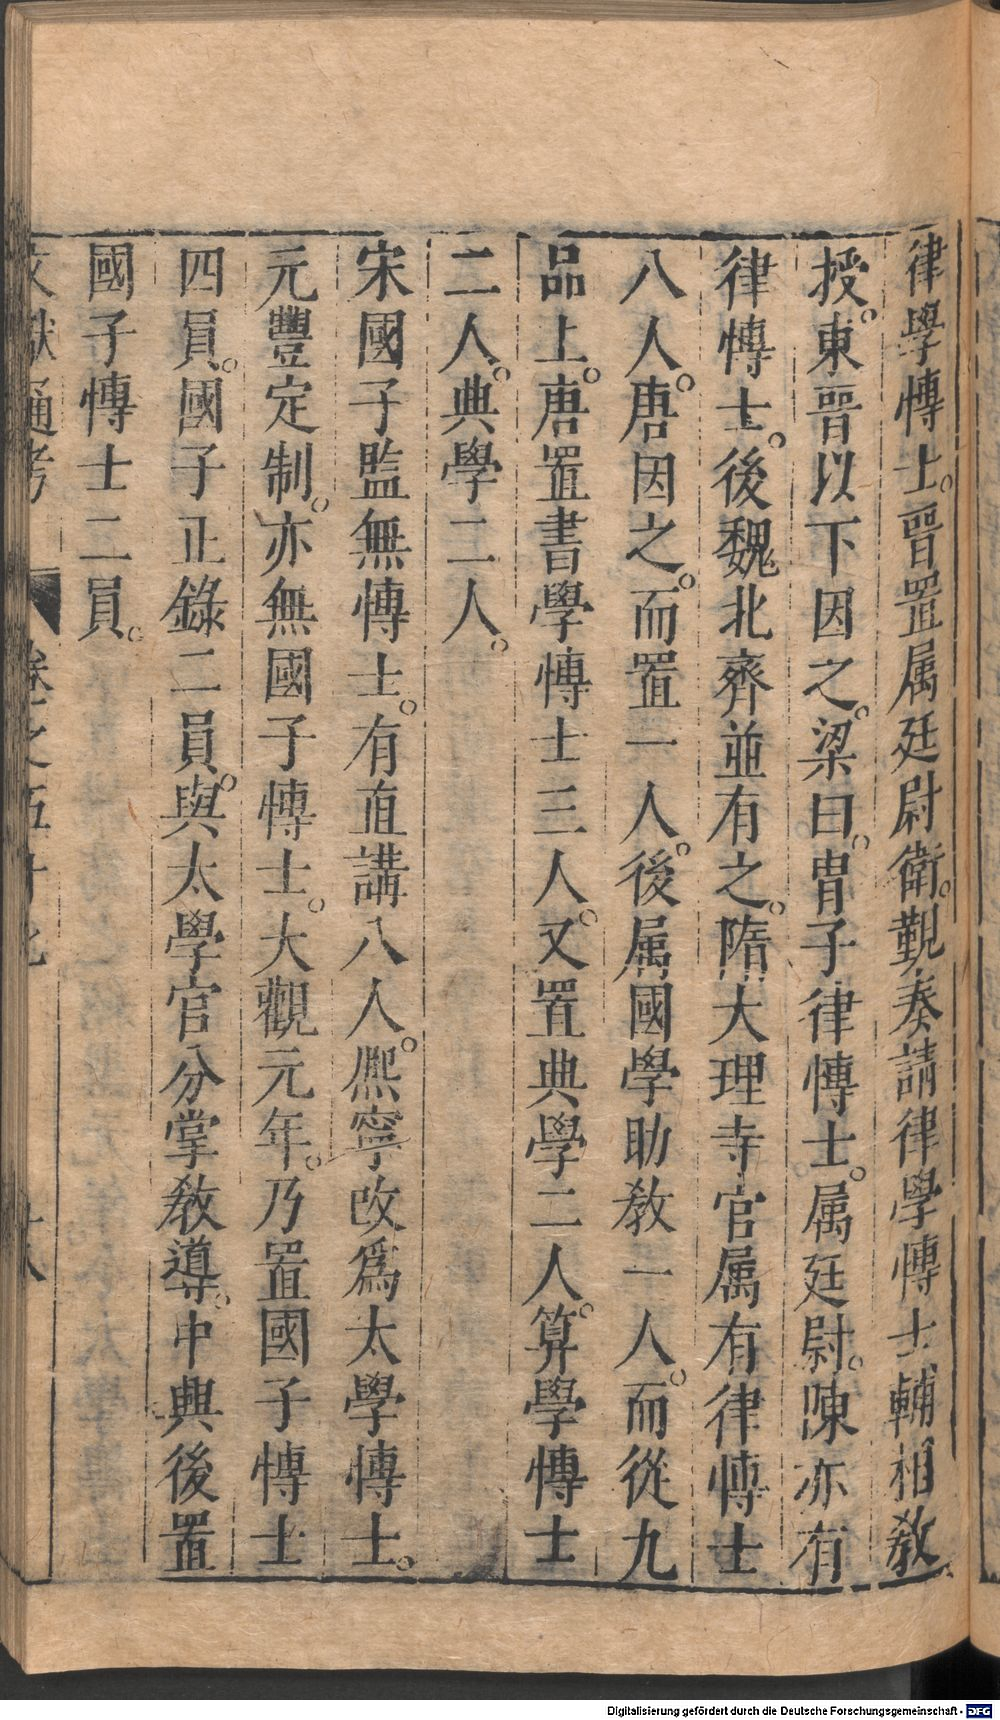 律學愽士。晉置属廷尉衛。覬奏請律學愽士輔相敎
授。東晉以下因之。梁曰。冑子律愽士。属廷尉。陳亦有
律愽士。後魏北齊並有之。隋大理寺官属有律愽士
八人。唐因之。而置一人。後属國學助敎一人。而從九
品上。唐置書學愽士三人。又置典學二人。算學愽士
二人。典學二人。
宋國子監無愽士。有直講八人。熈寧改爲太學愽士。
元豐定制。亦無國子愽士。大觀元年。乃置國子愽士
四員。國子正錄二員。與太學官分掌敎導。中興後置
國子愽士二員。
文獻通考 卷之五十七 十八
Digitalisierung gefördert durch die Deutsche Forschungsgemeinschaft - DFG